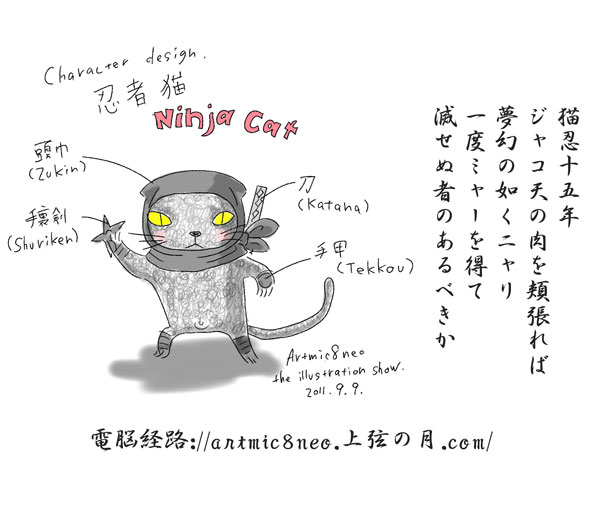 Character design.
忍者猫
Ninja Cat
頭巾
(Zukin)
手裏剣
(Shuriken)
刀
(Katana)
手甲
(Tekkou)
Artmic8neo
the illustration show.
2011.9.9.
猫忍十五年
ジャコ天の肉を頬張れば
夢幻の如くニャリ
一度ミャーを得て
滅せぬ者のあるべきか
電脳経路://artmic8neo.上弦の月.com/